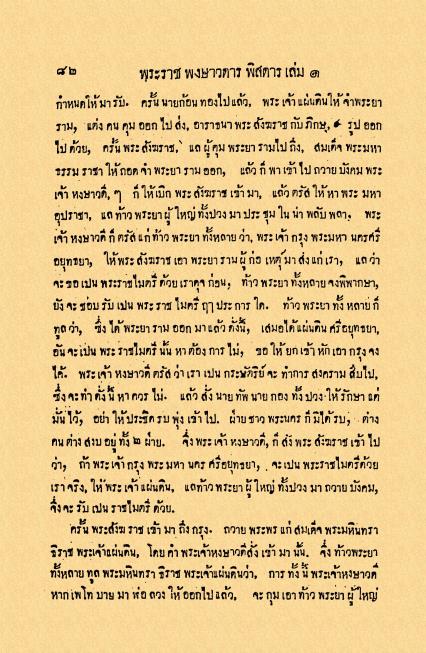 ๘๒ พฺระราช พงษาวดาร พิศดาร เล่ม ๑
กำหนดให้ มา รับ. ครั้น นายก้อน ทองไปแล้ว, พระ เจ้า แผ่นดินให้ จำพระยา
ราม, แต่ง คน คุม ออก ไป ส่ง, อาราธนา พระ สังฆราช กับ ภิกษุ, ๔ รูป ออก
ไป ด้วย, ครั้น พระ สังฆราช, แล ผู้ คุม พระยา รามไป ถึง, สมเด็จ พระมหา
ธรรม ราชา ให้ ถอด จำ พระยา ราม ออก, แล้ว ก็ พา เข้า ไป ถวาย บังคม พระ
เจ้า หงษาวดี, ๆ ก็ ให้เบิก พระ สังฆราช เข้า มา, แล้ว ตรัส ให้ หา พระ มหา
อุปราชา, แล ท้าว พระยา ผู้ ใหญ่ ทั้งปวง มา ประ ชุม ใน น่า พลับ พลา, พระ
เจ้า หงษาวดี ก็ ตรัส แก่ ท้าว พระยา ทั้งหลาย ว่า, พระ เจ้า กรุง พระมหา นครศรี
อยุทธยา, ให้ พระ สังฆราช เอา พระยา ราม ผู้ ก่อ เหตุ มา ส่ง แก่ เรา, แล ว่า
จะ ขอ เปน พระราชไมตรี ด้วย เราดุจ ก่อน, ท้าว พระยา ทั้งหลาย จงพิพากษา,
ยัง จะ ชอบ รับ เปน พระ ราช ไมตรี ฤๅ ประ การ ใด. ท้าว พระยา ทั้ง หลาย ก็
ทูล ว่า, ซึ่ง ได้ พระยา ราม ออก มา แล้ว ดั่งนี้, เสมอ ได้ แผ่นดิน ศรี อยุทธยา,
อัน จะ เปน พระ ราชไมตรี นั้น หา ต้อง การ ไม่, ขอ ให้ ยก เข้า หัก เอา กรุง จง
ได้. พระ เจ้า หงษาวดี ตรัส ว่า เรา เปน กระษัตริย์ จะ ทำการ สงคราม สืบ ไป,
ซึ่ง จะ ทำ ดั่ง นี้ หา ควร ไม่. แล้ว สั่ง นาย ทัพ นาย กอง ทั้ง ปวง ให้ รักษา แต่
มั่น ไว้, อย่า ให้ ประชิด รบ พุ่ง เข้า ไป. ฝ่าย ชาว พระนคร ก็ มิ ได้ รบ, ต่าง
คน ต่าง สงบ อยู่ ทั้ง ๒ ฝ่าย. จึ่ง พระ เจ้า หงษาวดี, ก็ สั่ง พระ สังฆราช เข้า ไป
ว่า, ถ้า พระ เจ้า กรุง พระ มหา นคร ศรีอยุทธยา, จะ เปน พระราชไมตรี ด้วย
เรา จริง, ให้ พระ เจ้า แผ่นดิน, แลท้าว พระยา ผู้ ใหญ่ ทั้งปวง มา ถวาย บังคม,
จึ่ง จะ รับ เปน ราชไมตรี ด้วย.
ครั้น พระสังฆ ราช เข้า มา ถึง กรุง. ถวาย พระพร แก่ สมเด็จ พระมหินทรา
ธิราช พระเจ้าแผ่นดิน, โดย คำ พระเจ้าหงษาวดี สั่ง เข้า มา นั้น. จึ่ง ท้าวพระยา
ทั้งหลาย ทูล พระมหินทรา ธิราช พระเจ้าแผ่นดินว่า, การ ทั้ง นี้ พระเจ้าหงษาวดี
หาก เพโท บาย มา ฬ่อ ลวง ให้ ออกไป แล้ว, จะ กุม เอา ท้าว พระยา ผู้ ใหญ่